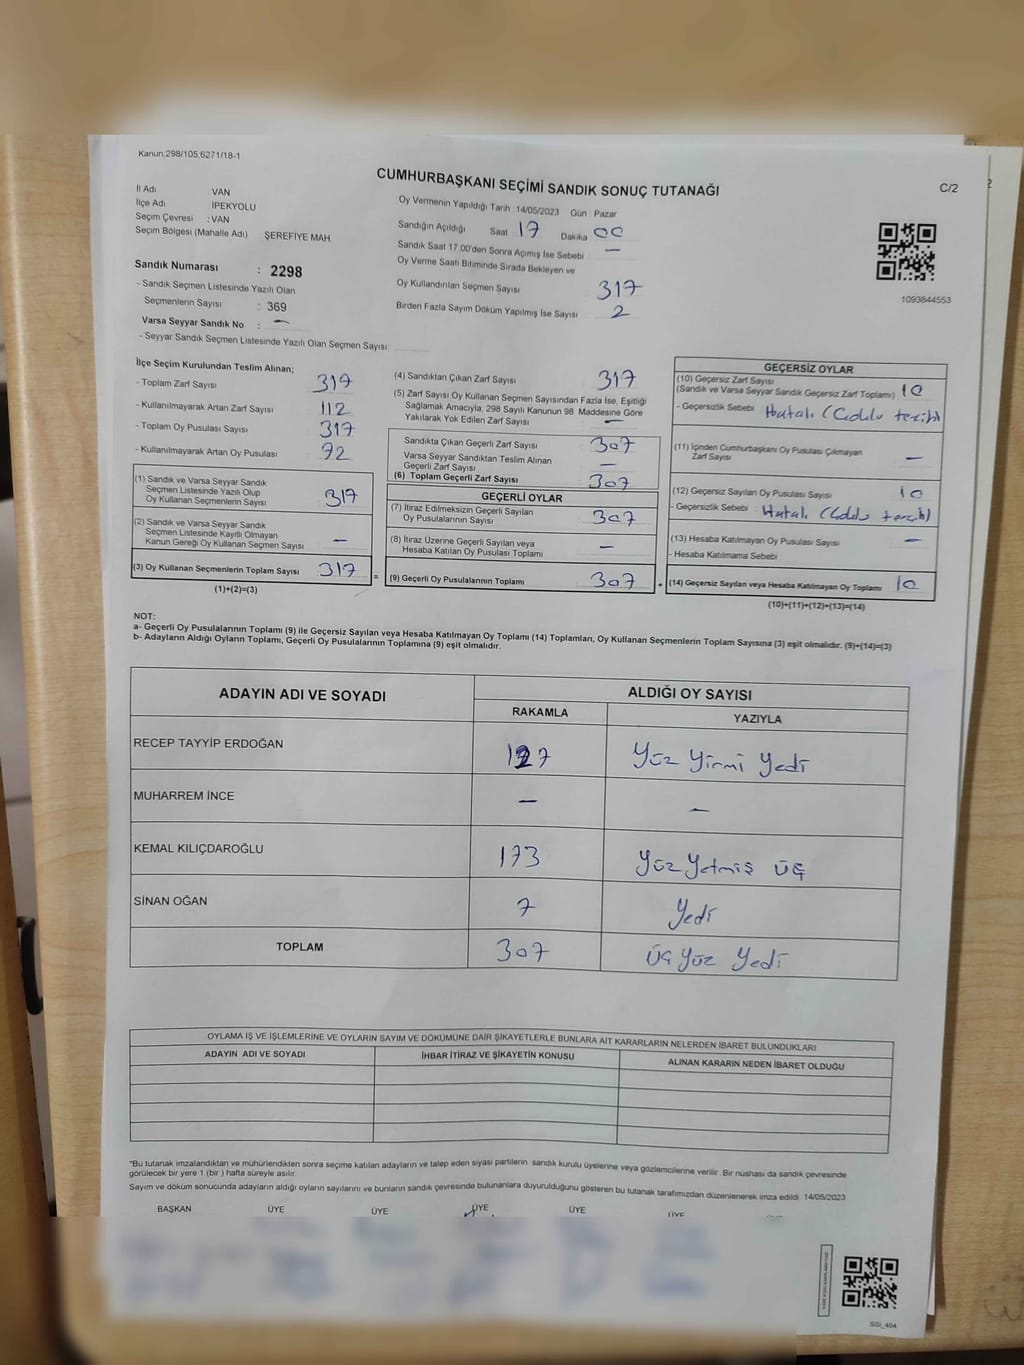 Kanun.298/105,6271/18-1
CUMHURBAŞKANI SEÇİMİ SANDIK SONUÇ TUTANAĞI
C/2
2
İl Adı VAN
İlçe Adı IPEKYOLU
Seçim Çevresi : VAN
Seçim Bölgesi (Mahalle Adı) ŞEREFİYE MAH
Sandık Numarası : 2298
- Sandık Seçmen Listesinde Yazılı Olan
Seçmenlerin Sayısı : 369
Varsa Seyyar Sandık No : —
- Seyyar Sandık Seçmen Listesinde Yazılı Olan Seçmen Sayısı:
Oy Vermenin Yapıldığı Tarih : 14/05/2023 Gün : Pazar
Sandığın Açıldığı Saat 17 Dakika 00
Sandık Saat 17:00'den Sonra Açımış İse Sebebi —
Oy Verme Saati Bitiminde Sırada Bekleyen ve
Oy Kullandırılan Seçmen Sayısı 317
Birden Fazla Sayım Döküm Yapılmış İse Sayısı 2
1093844553
İlçe Seçim Kurulundan Teslim Alınan;
- Toplam Zarf Sayısı 317
- Kullanılmayarak Artan Zarf Sayısı 112
- Toplam Oy Pusulası Sayısı 317
- Kullanılmayarak Artan Oy Pusulası 92
(1) Sandık ve Varsa Seyyar Sandık
Seçmen Listesinde Yazılı Olup
Oy Kullanan Seçmenlerin Sayısı 317
(2) Sandık ve Varsa Seyyar Sandık
Seçmen Listesinde Kayıtlı Olmayan
Kanun Gereği Oy Kullanan Seçmen Sayısı —
(3) Oy Kullanan Seçmenlerin Toplam Sayısı 317 =
(1)+(2)=(3)
(4) Sandıktan Çıkan Zarf Sayısı 317
(5) Zarf Sayısı Oy Kullanan Seçmen Sayısından Fazla İse, Eşitliği
Sağlamak Amacıyla, 298 Sayılı Kanunun 98. Maddesine Göre
Yakılarak Yok Edilen Zarf Sayısı —
Sandıkta Çıkan Geçerli Zarf Sayısı 307
Varsa Seyyar Sandıktan Teslim Alınan
Geçerli Zarf Sayısı —
(6) Toplam Geçerli Zarf Sayısı 307
GEÇERLİ OYLAR
(7) İtiraz Edilmeksizin Geçerli Sayılan
Oy Pusulalarının Sayısı 307
(8) İtiraz Üzerine Geçerli Sayılan veya
Hesaba Katılan Oy Pusulası Toplamı —
(9) Geçerli Oy Pusulalarının Toplamı 307 +
GEÇERSİZ OYLAR
(10) Geçersiz Zarf Sayısı
(Sandık ve Varsa Seyyar Sandık Geçersiz Zarf Toplamı) 10
- Geçersizlik Sebebi : Hatalı
(11) İçinden Cumhurbaşkanı Oy Pusulası Çıkmayan
Zarf Sayısı —
(12) Geçersiz Sayılan Oy Pusulası Sayısı 10
- Geçersizlik Sebebi : Hatalı
(13) Hesaba Katılmayan Oy Pusulası Sayısı —
- Hesaba Katılmama Sebebi
(14) Geçersiz Sayılan veya Hesaba Katılmayan Oy Toplamı 10
(10)+(11)+(12)+(13)=(14)
NOT:
a- Geçerli Oy Pusulalarının Toplamı (9) ile Geçersiz Sayılan veya Hesaba Katılmayan Oy Toplamı (14) Toplamları, Oy Kullanan Seçmenlerin Toplam Sayısına (3) eşit olmalıdır. (9)+(14)=(3)
b- Adayların Aldığı Oyların Toplamı, Geçerli Oy Pusulalarının Toplamına (9) eşit olmalıdır.
ADAYIN ADI VE SOYADI ALDIĞI OY SAYISI
RAKAMLA YAZIYLA
RECEP TAYYİP ERDOĞAN 127 Yüz Yirmi Yedi
MUHARREM İNCE — —
KEMAL KILIÇDAROĞLU 173 Yüz Yetmiş Üç
SİNAN OĞAN 7 Yedi
TOPLAM 307 Üç Yüz Yedi
OYLAMA İŞ VE İŞLEMLERİNE VE OYLARIN SAYIM VE DÖKÜMÜNE DAİR ŞİKAYETLERLE BUNLARA AİT KARARLARIN NELERDEN İBARET BULUNDUKLARI
ADAYIN ADI VE SOYADI İHBAR İTİRAZ VE ŞİKAYETİN KONUSU ALINAN KARARIN NEDEN İBARET OLDUĞU
*Bu tutanak imzalandıktan ve mühürlendikten sonra seçime katılan adayların ve talep eden siyasi partilerin sandık kurulu üyelerine veya gözlemcilerine verilir. Bir nüshası da sandık çevresinde
görülecek bir yere 1 (bir ) hafta süreyle asılır.
Sayım ve döküm sonucunda adayların aldığı oyların sayılarını ve bunların sandık çevresinde bulunanlara duyurulduğunu gösteren bu tutanak tarafımızdan düzenlenerek imza edildi. 14/05/2023
BAŞKAN ÜYE ÜYE ÜYE ÜYE ÜYE
SSI_404